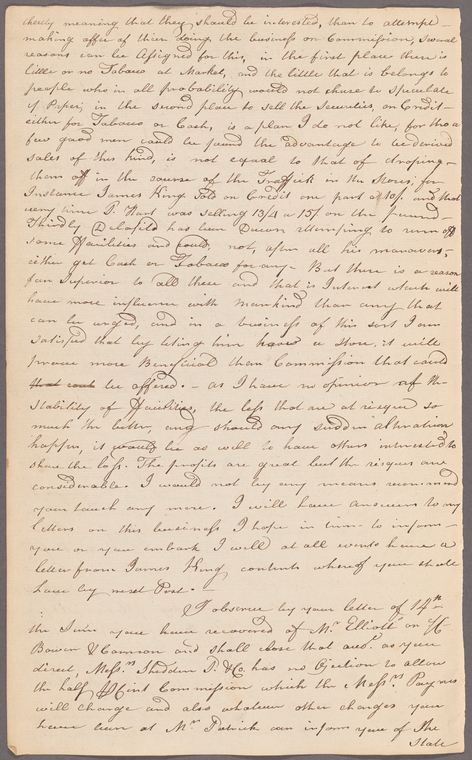 thereby meaning that they should be interested, than to attempt
making offer of their doing the business on Commission, several
reasons can be Assigned for this, in the first place there is
little or no Tobacco at Market, and the little that is belongs to
people who in all probability would not chuse to speculate
of Paper; in the second place to sell the Securities, on Credit
either for Tobacco or Cash, is a plan I do not like, for tho a
few good men could be found the advantage to be derived
sales of this kind, is not equal to that of droping
them off in the course of the Traffick in the Stores; for
Instance James King Sold on Credit one part at 10/. and that
very time P. Hart was selling 13/4 a 15/ on the
Thirdly Delafield has been attempting to run off
some Facilities and could, not, after all his manœuvers,
either get Cash or Tobacco for any. But there is a reason
far Superior to all these and that is Interest which will
have more influence with Mankind than any that
can be urged, and in a business of this sort I am
satisfied that by leting him have a Store, it will
prove more Beneficial than Commission that could
that could be offered. - as I have no opinion of the
Stability of Facilities, the less that are at risque so
much the better, and should any sudden alteration
happen, it would be as well to have others interested to
share the loss. The profits are great but the risques are
considerable. I would not by any means recommend
your touch any more. I will have answers to my
letters on this business I hope in time to inform
you or you embark I will at all events have a
letter from James King, contents whereof you shall
have by next Post.
I observe by your letter of 14th
the Sum you have recovered of Mr. Elliott on a/c
Bowen & Cannon and shall close that acct. as you
direct, Messrs. Shedden P. & Co. has no Objection to allow
the half Cent Commission which the Messrs. Paynes
will charge and also whatever other charges you
have been at Mr. Patrick can inform you of the
State